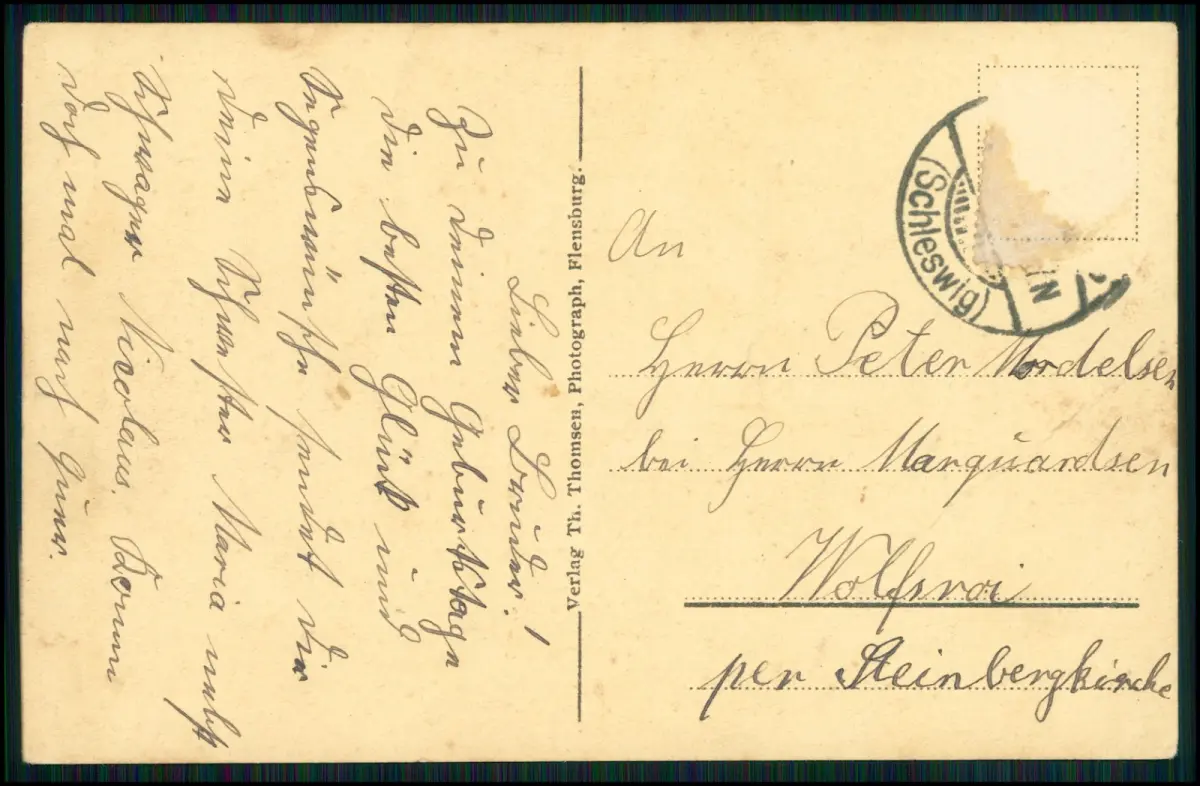 Lieber Bruder!
Zu deinem Geburtstage
die besten Glück und
Segenswünsche sendet dir
deine Schwester Maria nebst
Schwager Nicolaus. Komm
doch mal nach hier.
Verlag Th. Thomsen, Photograph, Flensburg.
(Schleswig)
An
Herrn Peter Mordelsen
bei Herrn Marquardsen
Wolfsroi
per Steinbergkirche